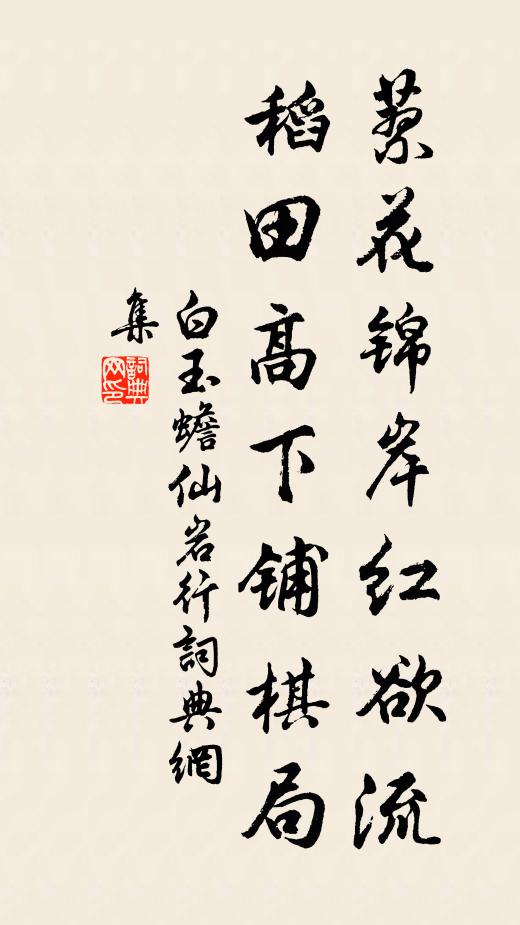 蓼花锦岸红欲流
稻田高下铺棋局
白玉蟾仙岩行詞典網
集
詞典
网印